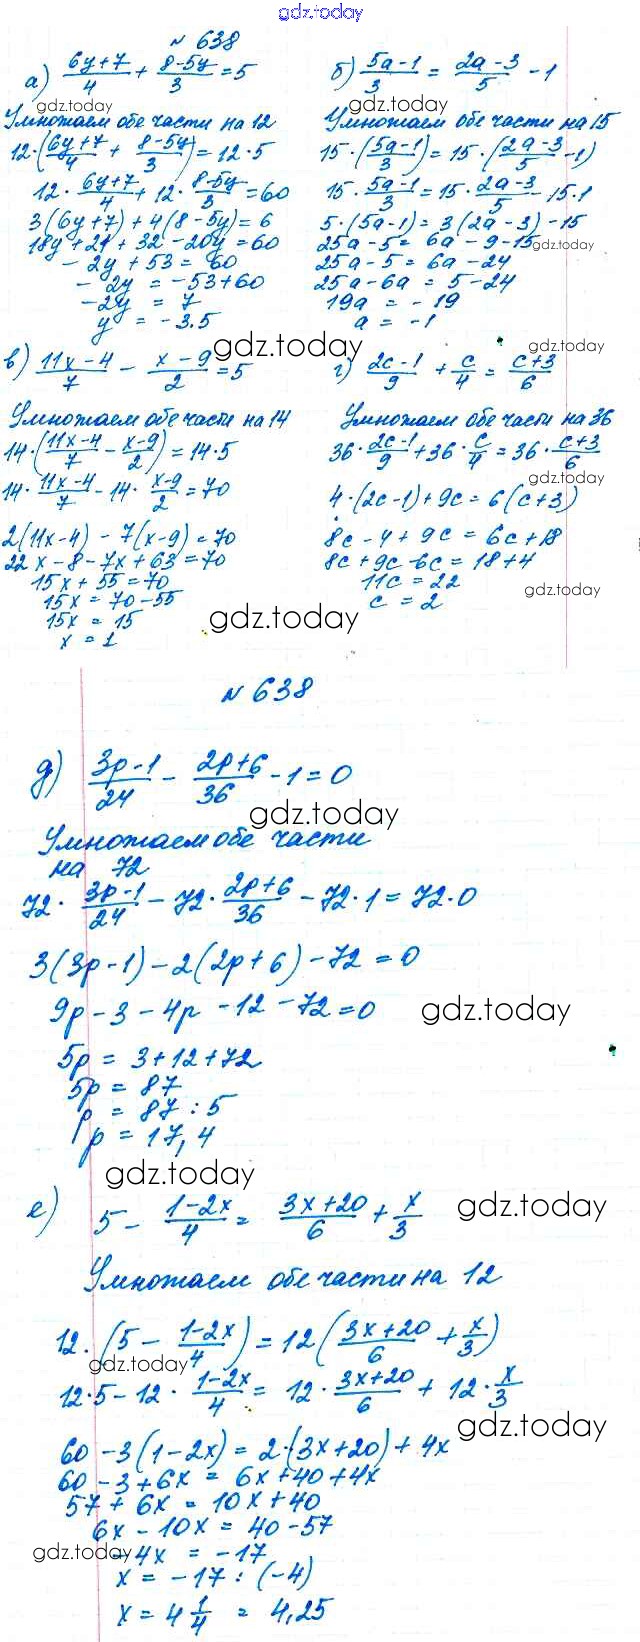 gdz.today
№ 638
а) (6y+7)/4 + (8-5y)/3 = 5
gdz.today
Умножаем обе части на 12
12·((6y+7)/4 + (8-5y)/3) = 12·5
12·(6y+7)/4 + 12·(8-5y)/3 = 60
3(6y+7)+4(8-5y)=6
18y+21+32-20y=60
-2y+53=60
-2y=-53+60
-2y=7
y=-3.5
б) (5a-1)/3 = (2a-3)/5 - 1
gdz.today
Умножаем обе части на 15
15·((5a-1)/3) = 15·((2a-3)/5 - 1)
15·(5a-1)/3 = 15·(2a-3)/5 - 15·1
5·(5a-1)=3(2a-3)-15
25a-5=6a-9-15
gdz.today
25a-5=6a-24
25a-6a=5-24
19a=-19
a=-1
gdz.today
в) (11x-4)/7 - (x-9)/2 = 5
Умножаем обе части на 14
14·((11x-4)/7 - (x-9)/2) = 14·5
14·(11x-4)/7 - 14·(x-9)/2 = 70
2(11x-4)-7(x-9)=70
22x-8-7x+63=70
15x+55=70
15x=70-55
15x=15
x=1
gdz.today
г) (2c-1)/9 + c/4 = (c+3)/6
gdz.today
Умножаем обе части на 36
36·(2c-1)/9 + 36·c/4 = 36·(c+3)/6
gdz.today
4·(2c-1)+9c=6(c+3)
8c-4+9c=6c+18
8c+9c-6c=18+4
11c=22
gdz.today
c=2
№ 638
д) (3p-1)/24 - (2p+6)/36 - 1 = 0
gdz.today
Умножаем обе части
на 72
72·(3p-1)/24 - 72·(2p+6)/36 - 72·1 = 72·0
3(3p-1)-2(2p+6)-72=0
9p-3-4p-12-72=0
gdz.today
5p=3+12+72
5p=87
p=87:5
p=17,4
gdz.today
е) 5 - (1-2x)/4 = (3x+20)/6 + x/3
gdz.today
Умножаем обе части на 12
12·(5 - (1-2x)/4) = 12((3x+20)/6 + x/3)
gdz.today
12·5 - 12·(1-2x)/4 = 12·(3x+20)/6 + 12·x/3
gdz.today
60-3(1-2x)=2·(3x+20)+4x
60-3+6x=6x+40+4x
57+6x=10x+40
6x-10x=40-57
gdz.today
-4x=-17
x=-17:(-4)
x=4 1/4=4,25